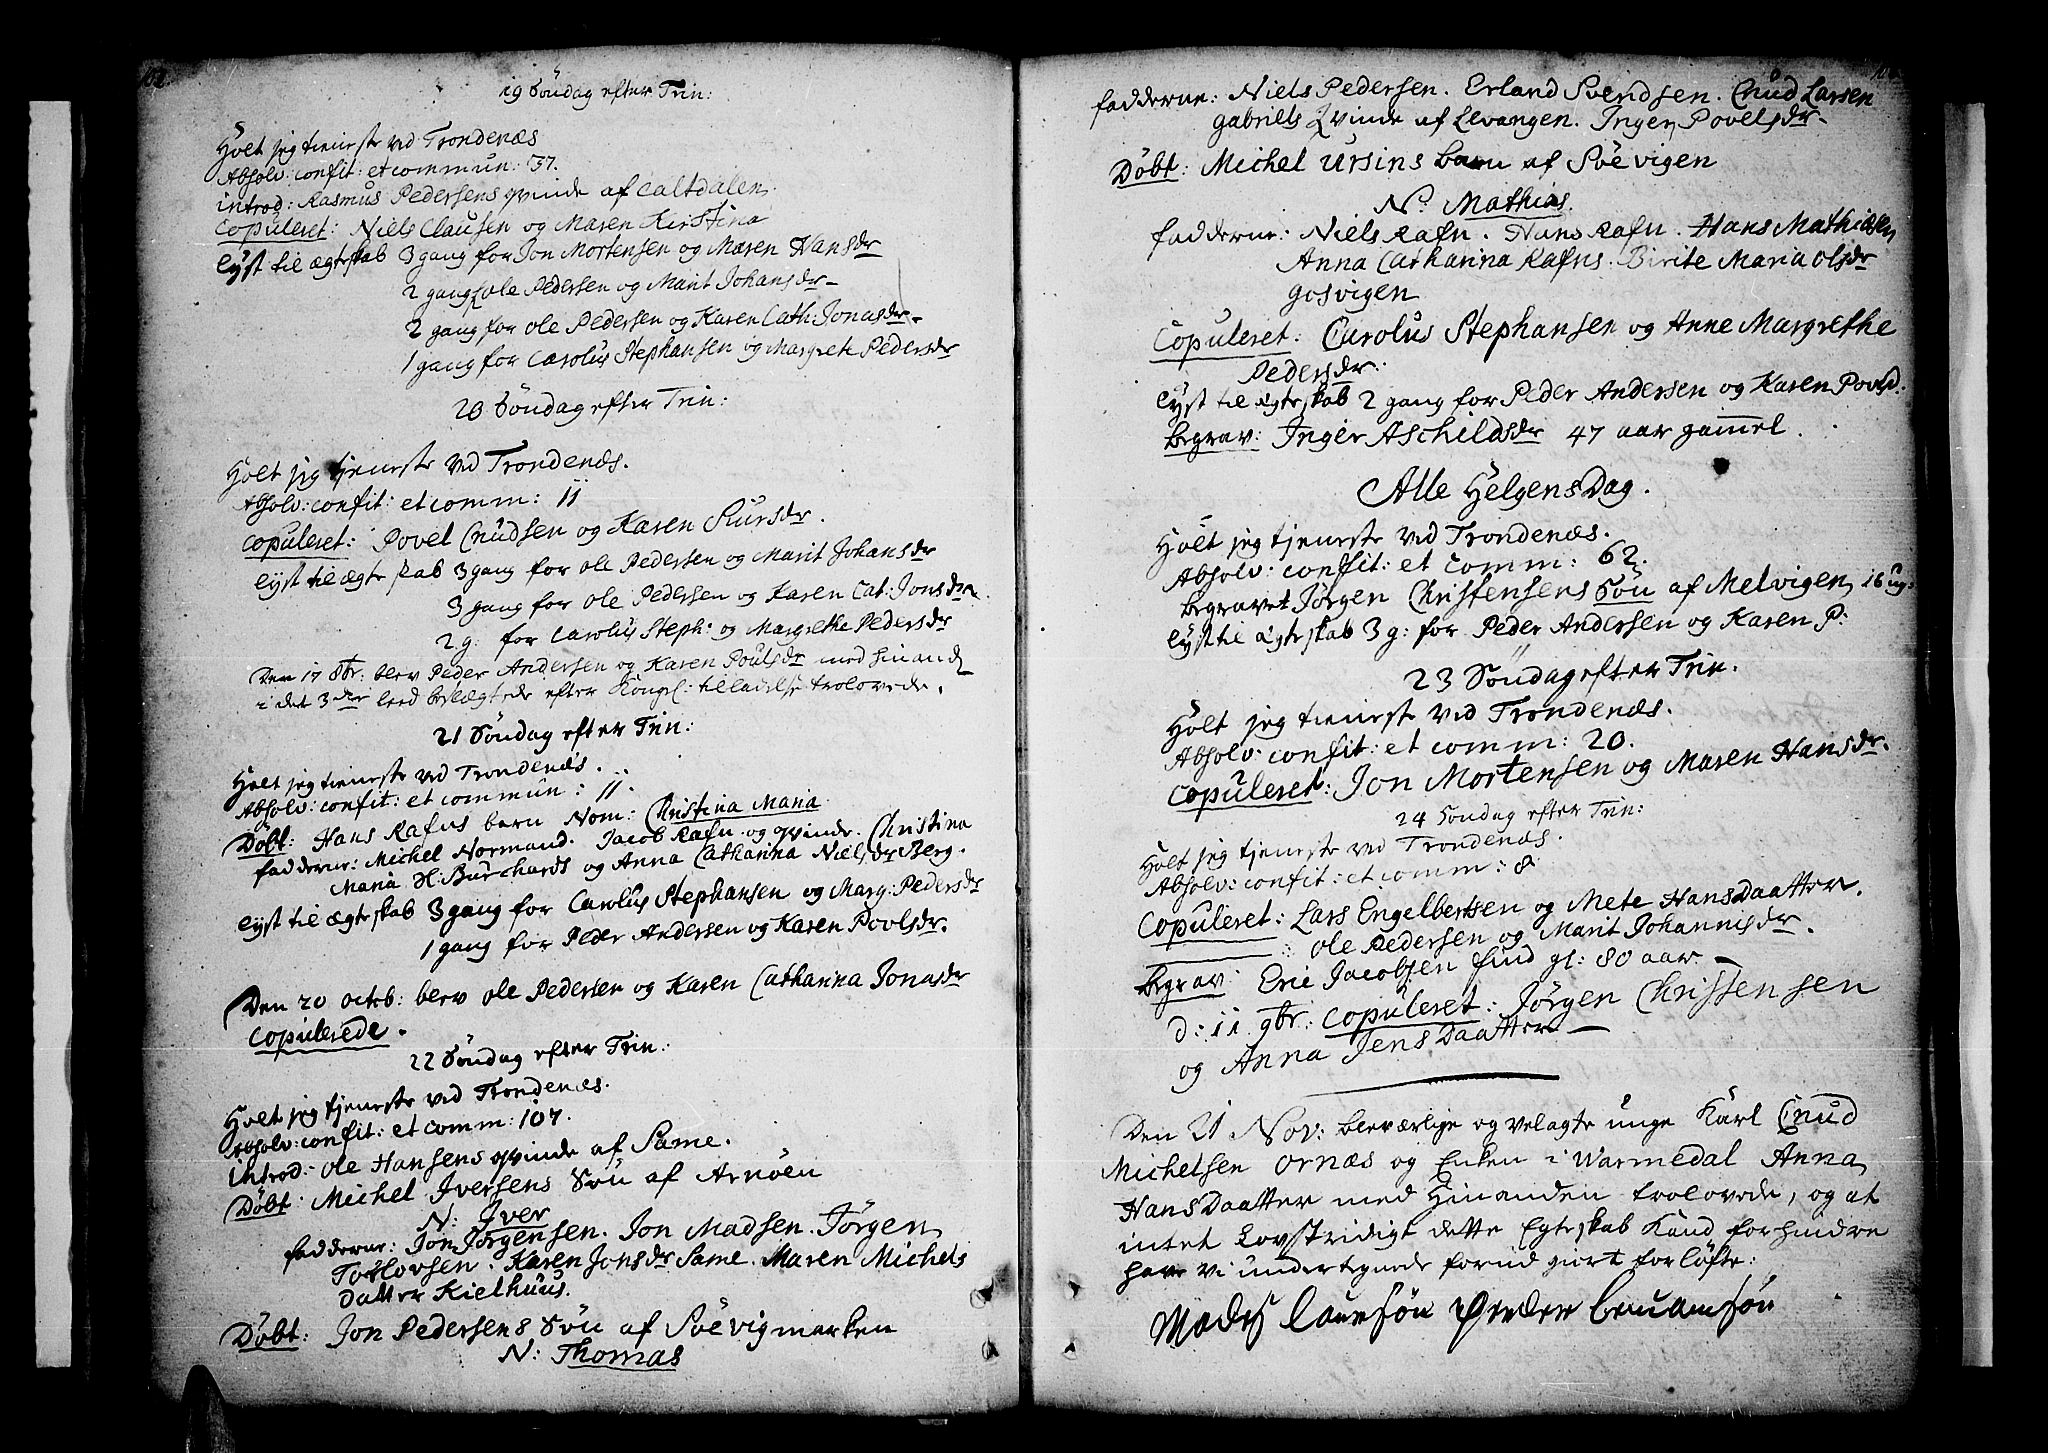 102.
19 Söndag efter Trin:
Holt jeg tieneste ved Trondenæs
Absolv: confit: et commun: 37.
introd: Rasmus Pedersens qvinde af Caltdalen.
Copuleret: Niels Clausen og Maren Kirstina
lyst til ægteskab 3 gang for Jon Mortensen og Maren Hansdr
2 gang Ole Pedersen og Marit Johansdr
2 gang for Ole Pedersen og Karen Cath: Jonasdr.
1 gang for Carolus Stephansen og Margrete Pedersdr
20 Söndag efter Trin:
Holt jeg tjeneste ved Trondenæs.
Absolv: confit: et comm: 11
Copuleret: Povel Cnudsen og Karen Siursdr.
lyst til ægteskab 3 gang for Ole Pedersen og Marit Johansdr
3 gang for Ole Pedersen og Karen Cat: Jonsdr.
2 g: for Carolus Steph: og Margrethe Pedersdr
Den 17 8br: blev Peder Andersen og Karen Poulsdr med hinand
i det 3die leed beslægtede efter Kongel: tilladelse trolovede.
21 Söndag efter Trin:
Holt jeg tieneste ved Trondenæs.
Absolv: confit: et commun: 11.
Döbt: Hans Rafns barn Nom: Christina Maria
fadderne: Michel Normand. Jacob Rafn og qvinde. Christina
Maria H: Burchards og Anna Catharina Nielsdr Berg.
lyst til ægteskab 3 gang for Carolus Stephansen og Marg: Pedersdr
1 gang for Peder Andersen og Karen Povlsdr.
Den 20 octob: blev Ole Pedersen og Karen Catharina Jonasdr
copulerede.
22 Söndag efter Trin:
Holt jeg tjeneste ved Trondenæs.
Absolv: confit: et comm: 107.
introd: Ole Hansens qvinde af Same.
Döbt: Michel Iversens Sön af Arnöen
N: Iver
fadderne: Jon Jörgensen. Jon Madsen. Jörgen
Torlovsen. Karen Jonsdr Same. Maren Michels
Datter Kielhuus.
Döbt: Jon Pedersens Sön af Söevigmarken
N: Thomas
fadderne: Niels Pedersen. Erland Svendsen. Cnud Larsen
gabriels Qvinde af Levangen. Inger Povelsdr.
Döbt: Michel Ursins barn af Söevigen
N: Mathias.
fadderne: Niels Rafn. Hans Rafn. Hans Mathiæsen
Anna Catharina Rafns. Birite Maria Olsdr
Gosvigen
Copuleret: Carolus Stephansen og Anne Margrethe
Pedersdr:
lyst til ægteskab 2 gang for Peder Andersen og Karen Povlsd.
Begrav: Inger Aschildsdr 47 aar gammel.
Alle Helgens Dag.
Holt jeg tjeneste ved Trondenæs.
Absolv: confit: et comm: 62.
begravet Jörgen Christensens Sön af Melvigen, 16 ug:
lyst til ægteskab 3 g: for Peder Andersen og Karen P:
23 Söndag efter Trin.
Holt jeg tieneste ved Trondenæs.
Absolv: confit: et comm: 20.
Copuleret: Jon Mortensen og Maren Hansdr.
24 Söndag efter Trin:
Holt jeg tjeneste ved Trondenæs.
Absolv: confit: et comm: 8
Copuleret: Lars Engelbertsen og Mete HansDaatter.
Ole Pedersen og Marit Johannisdr.
Begrav: Eric Jacobsen find gl: 80 aar
d: 11 9br: copuleret: Jörgen Christensen
og Anna JensDaatter
Den 21 Nov: blev ærlige og velagte unge Karl Cnud
Michelsen Ornæs og Enken i Warmedal Anna
HansDaatter med Hinanden trolovede, og at
intet Lovstridigt dette Egteskab Kand forhindre
have vi undertegnede forud giort forlöfte: